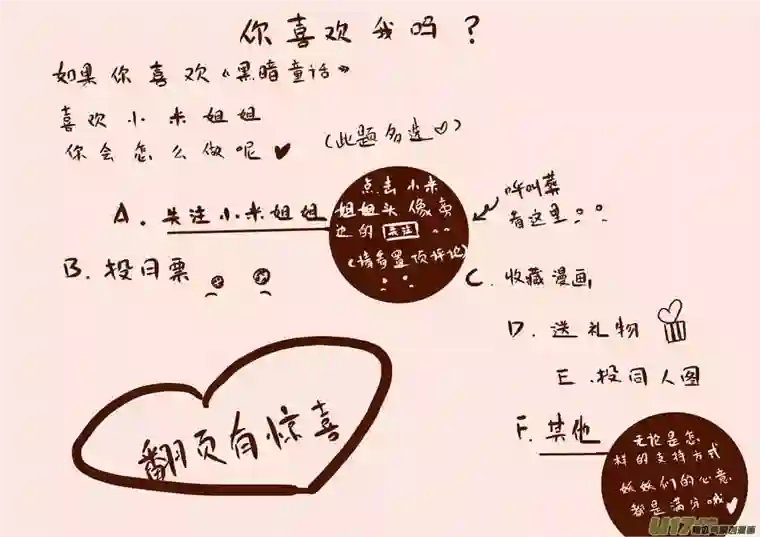 你喜欢我吗？
如果你喜欢《黑暗童话》
喜欢小米姐姐
你会怎么做呢♥
(此题多选♡)
A. 关注小米姐姐
点击小米
姐姐头像旁
边的 关注
(请看置顶评论)
呼叫葵
看这里
B. 投月票
C. 收藏漫画
D. 送礼物
E. 投同人图
F. 其他
无论是怎
样的支持方式
妹妹们的心意
都是满分哦♥
翻页有惊喜
U17